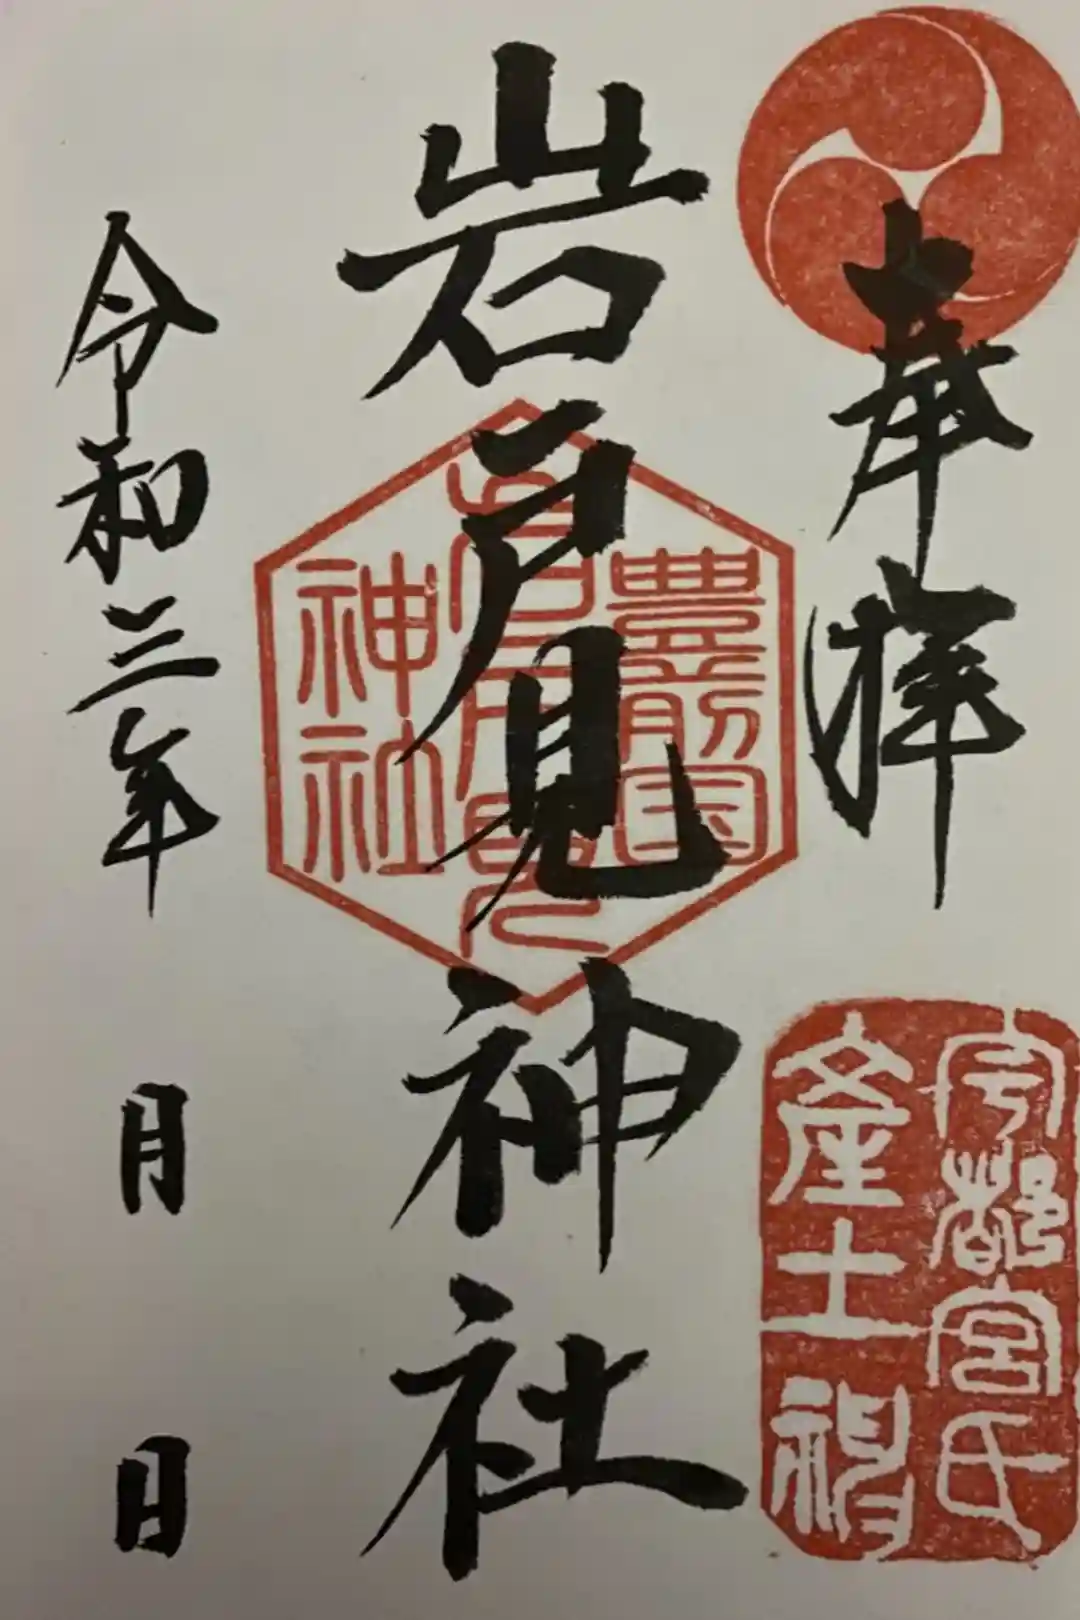 奉拝
岩戸見神社
令和三年 月 日
豊前国
岩戸見
神社
宇都宮氏
産土神